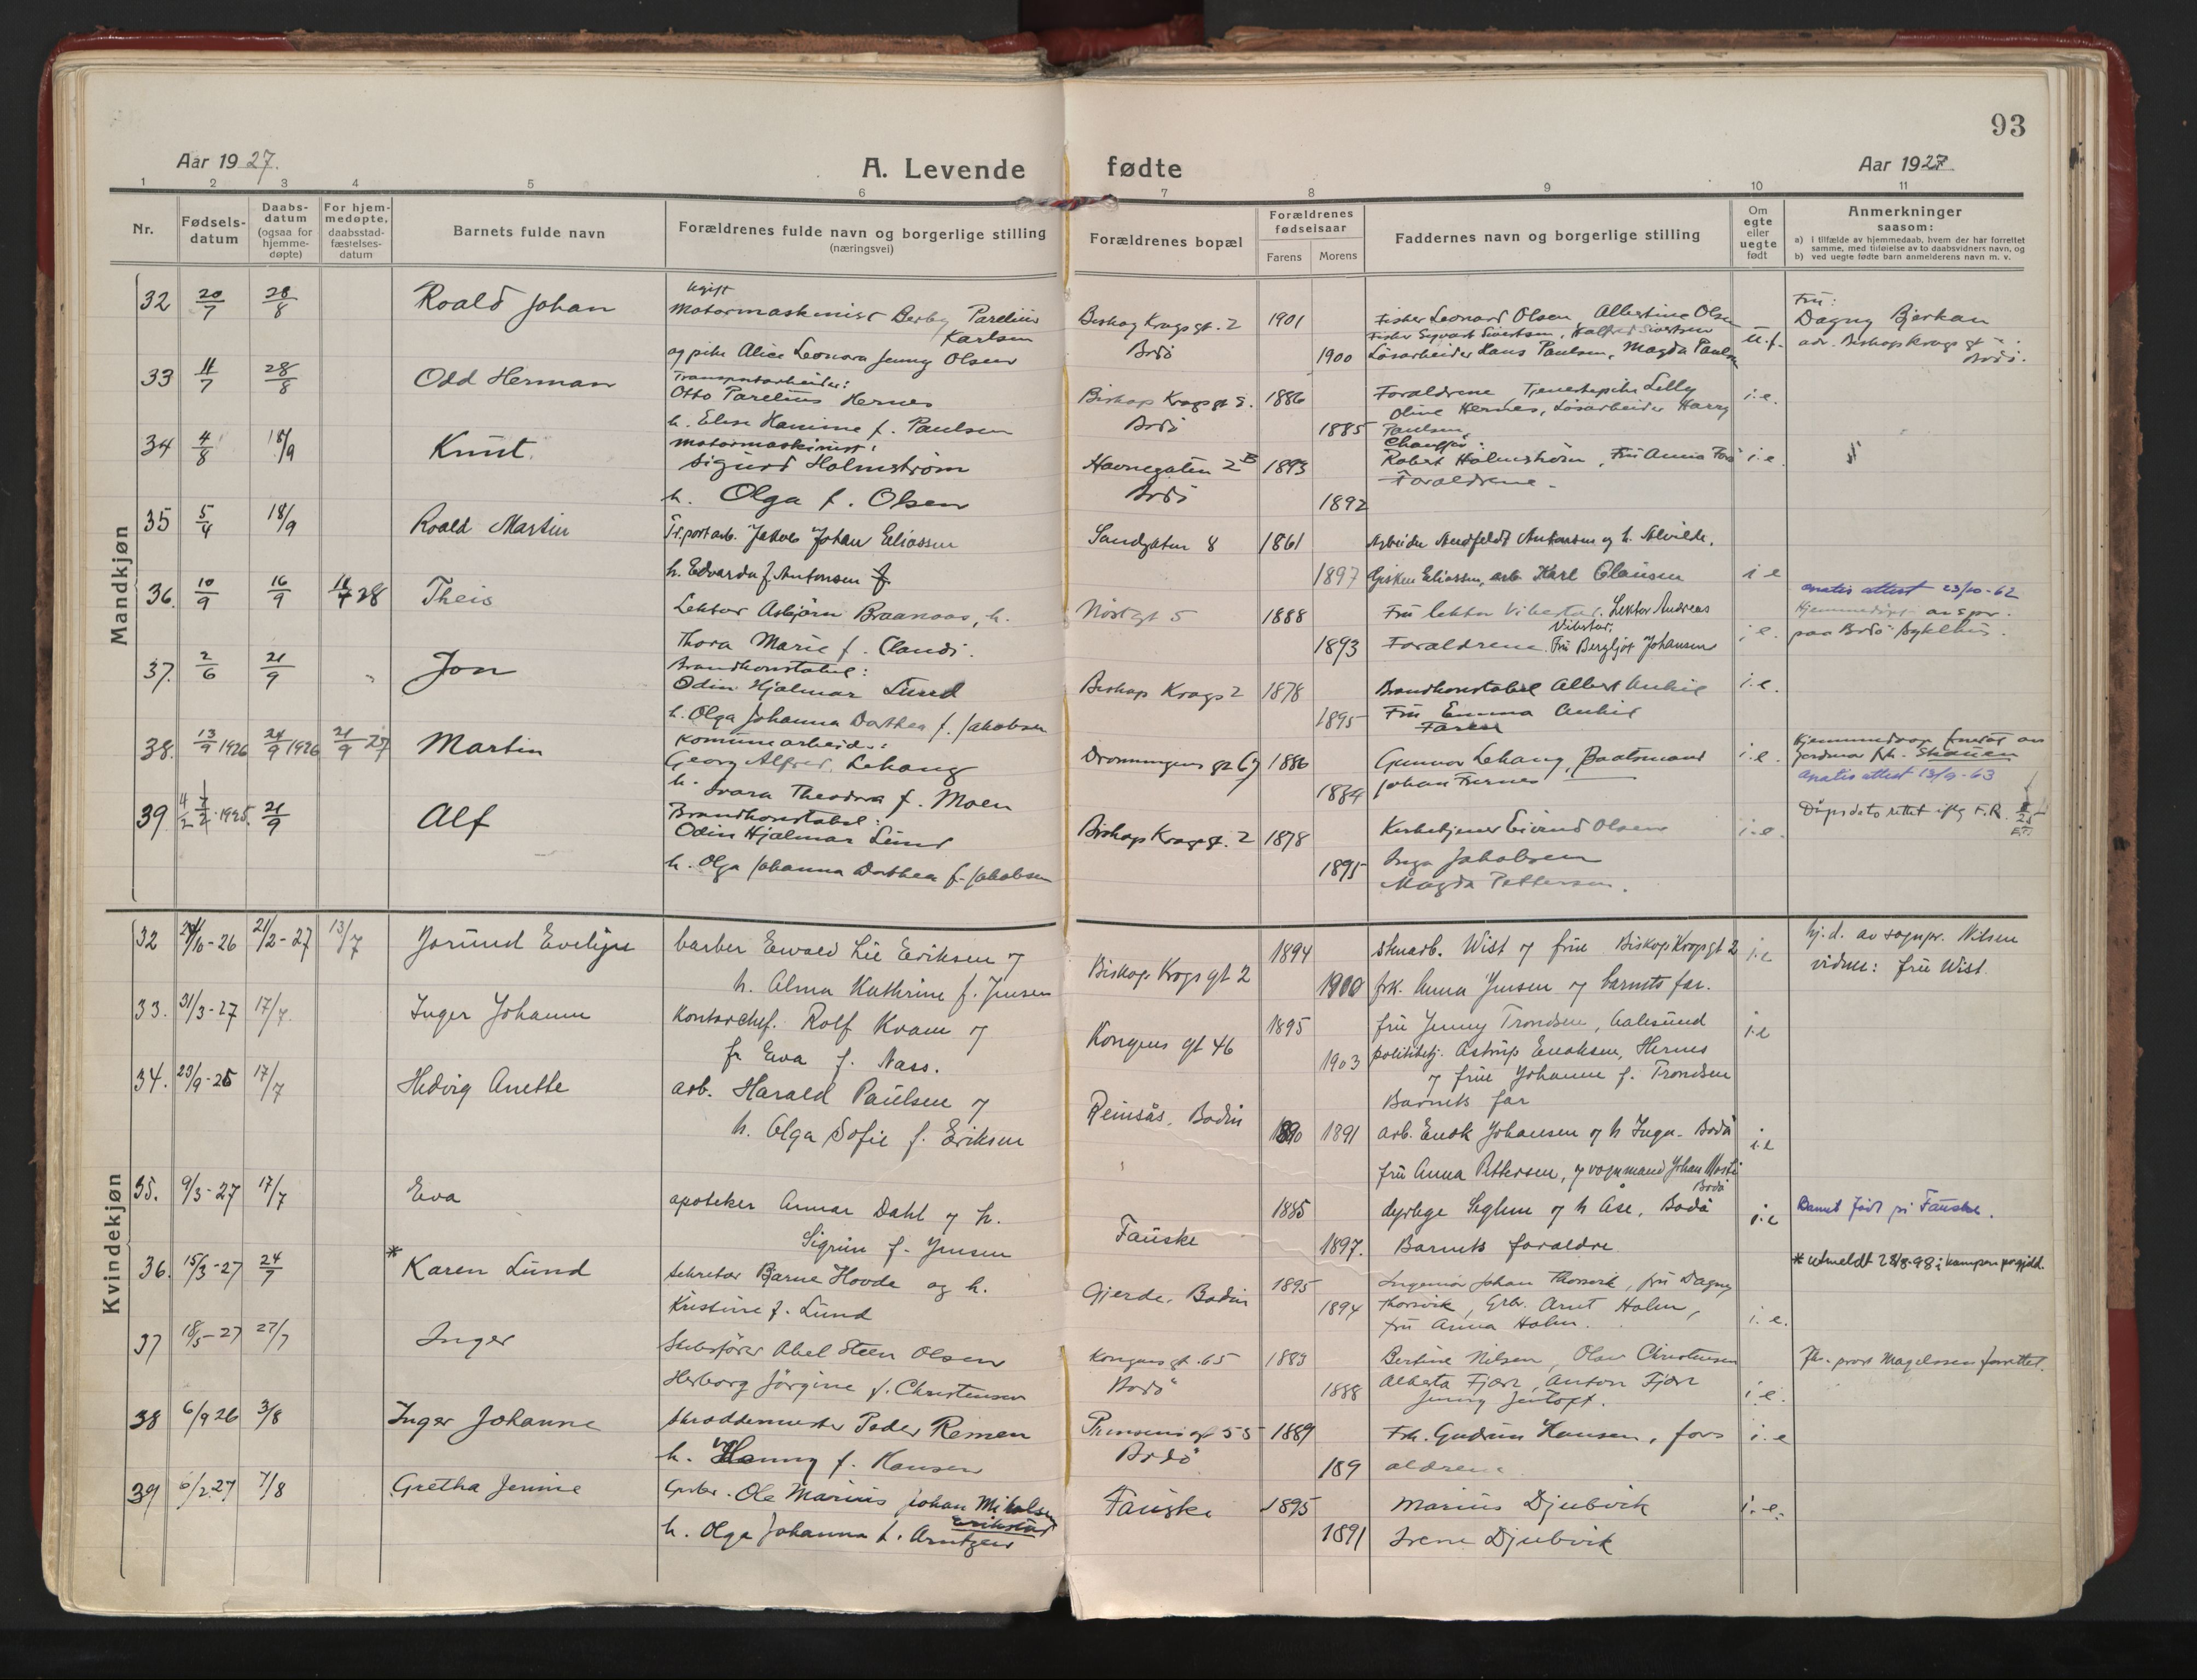 93
Aar 1927.
A. Levende fødte
Aar 1927
1 2 3 4 5 6 7 8 9 10 11
Nr.
Fødsels-datum
Daabs-datum (ogsaa for hjemme-døpte)
For hjem-medøpte, daabsstad-fæstelses-datum
Barnets fulde navn
Forældrenes fulde navn og borgerlige stilling (næringsvei)
Forældrenes bopæl
Forældrenes fødselsaar
Farens Morens
Faddernes navn og borgerlige stilling
Om egte eller uegte født
Anmerkninger saasom:
a) I tilfælde av hjemmedaab, hvem der har forrettet samme, med tilføielse av to daabsvidners navn, og
b) ved uegte fødte barn anmelderens navn m. v.
Mandkjøn
32 20/7 28/8 Roald Johan
Ugift
Motormaskinist Berby Parelius Karlsen
og pike Alice Leonora Jenny Olsen
Biskop Krogs gt. 2 Bodö 1901 1900
Fisker Leonard Olsen Albertine Olsen
Fisker Sigvart Sivertsen,
Løsarbeider Hans Paulsen, Magda Paulsen
u.f.
Fru:
Dagny Bjerkan
adr. Biskop Krogs gt
Bodö.
33 11/7 28/8 Odd Herman
Transportarbeider:
Otto Parelius Hernes
h. Elise Hanine f. Paulsen
Biskop Krogs gt 2. Bodö 1886 1885
Foraldrene Tjenestepike Lelly
Oline Hernes, Løsarbeider Harry
Paulsen
i.e.
34 4/8 18/9 Knut.
Motormaskinist:
Sigurd Holmström
h. Olga f. Olsen
Havnegaten 2B Bodö 1893 1892
Chauffør:
Robert Holmström, Fru Anna
Foraldrene.
i.e.
35 5/4 18/9 Roald Martin
Tr.portarb. Jakob Johan Eliassen
h. Edvarda f. Antonsen
Sandgaten 8 1861 1897
Arbeider Antonsen og h. Alvilde.
Gisken Eliassen, arb. Karl Clausen
i e
36. 10/9 16/9 11/4 28 Theis
Lektor Asbjörn Braanaas, h.
Thora Marie f. Claudi.
Nöstgt 5 1888 1893
Fru lektor Vibestad. Lektor Andreas
Vibstad.
Foraldrene. Fru Bergljot Johansen
i e.
anatis attest 23/10-62
Hjemmedöpt av spr.
paa Bodö Sykehus.
37. 2/6 21/9 Jon
Brandkonstabel:
Odin Hjalmar Lund
h. Olga Johanna Dorthea f. Jakobsen
Biskop Krogs 2 1878 1895
Brandkonstabel Albert
Fru Emma
Faren
i.e.
38. 13/9 1926 24/9 1926 21/9 27 Martin
Komunearbeid.:
Georg Alfred Lehaug
h. Svara Theodora f. Moen
Dronningens gt 67 1886 1884
Gunnar Lehaug, Baatsmand
Johan Furnes
i.e.
Hjemmedaap foretat av
jordmor frk. Skauen
anatis attest 13/9-63
39 1925. 21/9 Alf
Brandkonstabel:
Odin Hjalmar Lund
h. Olga Johanna Dorthea f. Jakobsen
Biskop Krogs gt. 2 1878 1895
Kirketjener Eivind Olsen
Inga Jakobsen
Magda Pettersen.
i.e.
Dåpsdato rettet iflg F.R.
Kvindekjøn
32 24/10-26 21/2-27 13/7 Jorund Evelyn
barber Ewald Lie Eriksen og
h. Alma Kathrine f. Jensen
Biskop Krogs gt 2 1894 1900
stuarb. Wist og frue Biskop Krogs gt 2
frk. Anna Jensen og barnets far.
i.e
hj.d. av sogepr. Nilsen
vidne: frue Wist.
33. 31/3-27 17/7. Inger Johanne
Kontorchef. Rolf Kvam og
fr Eva f. Nass.
Kongens gt 46 1895 1903
fru Jenny Trondsen, Aalesund
politibetj. Astrup Enoksen, Hernes
og frue Johanne f. Trondsen
Barnets far
i.e
34. 23/9-26 17/7 Hedvig Anette
arb. Harald Paulsen og
h. Olga Sofie f. Eriksen
Reinsås, Bodin 1890 1891
arb. Enok Johansen og h Inga. Bodö
fru Anna Pettersen, og vognmand Johan Mosti
Bodö
i.e
35. 9/3-27 17/7 Eva
apoteker Annar Dahl og h.
Sigrun f. Jensen
Fauske 1885 1897.
dyrlege Seglem og h Åse, Bodö
Barnets foraldre
i.e
Barnet født på Fauske.
36. 15/3-27 24/7 * Karen Lund
Sekretær Bjarne Hovde og h.
Kristine f. Lund
Gjerde, Bodin 1895 1894
Ingeniør Johan Thorsvik, fru Dagny
Thorsvik, Grb. Arnt Holm,
fru Anna Holm.
i. e.
* utmeldt 28/8-98 i kampen pr.gjeld.
37 18/5-27 27/7 Inger
Skibsfører Abel Steen Olsen
Herborg Jörgine f. Christensen
Kongens gt. 65 Bodö 1883 1888
Bertine Nilsen, Olav Christensen
Alberta Fjær, Anton Fjær
Jenny Jentoft.
i.e.
Hr. prost Magelssen forrettet.
38 6/9 26 3/8 Inger Johanne
Skreddermester Peder Remen
h. Hanny f. Hansen
Prinsens gt 55 Bodö 1889 189
Frk. Gudrun Hansen, for-
aldrene
i.e
39 6/2 27 7/8 Gretha Jenine
Gbr. Ole Marius Johan Mikalsen
Erikstad
h. Olga Johanna f. Arntzen
Fauske 1895 1891
Marius Djubvik
Irene Djubvik
i.e.